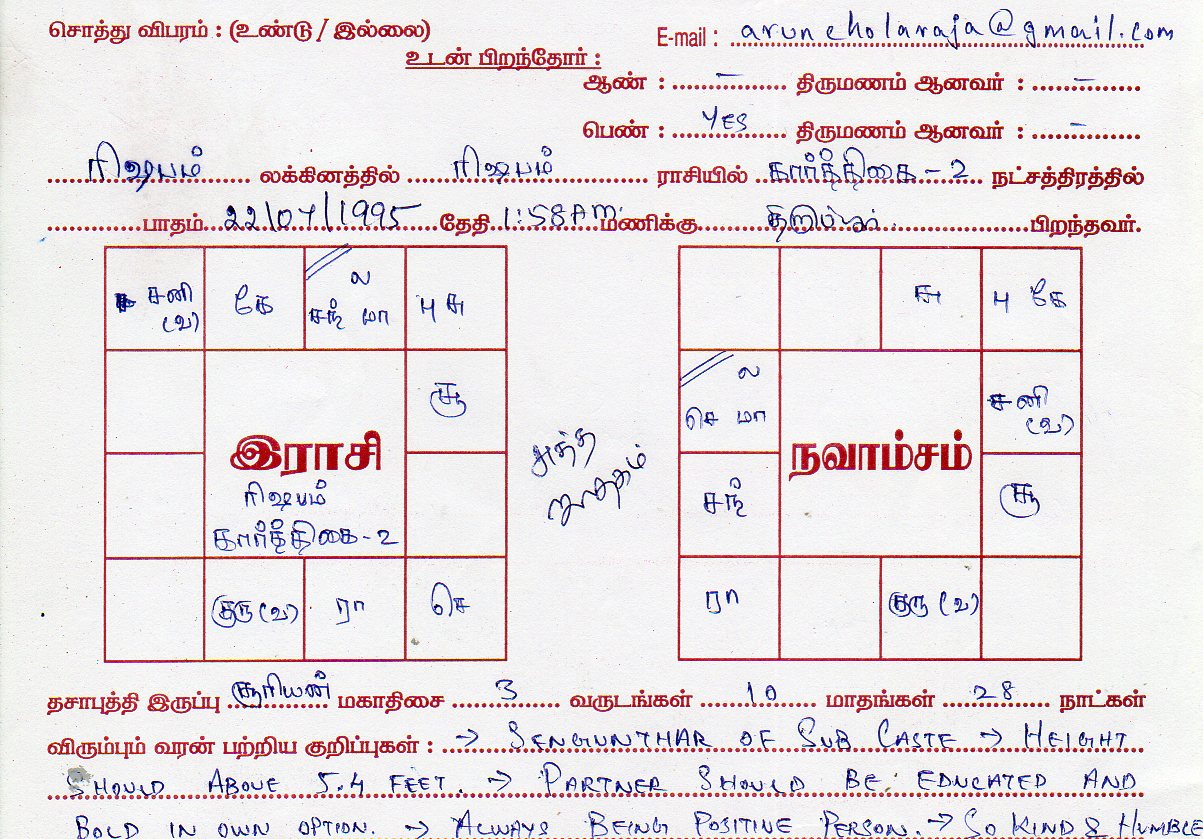 சொத்து விபரம் : (உண்டு / இல்லை)
E-mail : aruncholaraja@gmail.com
உடன் பிறந்தோர் :
ஆண் : – திருமணம் ஆனவர் : –
பெண் : YES திருமணம் ஆனவர் : –
ரிஷபம் லக்கினத்தில் ரிஷபம் ராசியில் கார்த்திகை - 2 நட்சத்திரத்தில்
பாதம் 22/07/1995 தேதி 1:58 AM மணிக்கு பிறந்தவர்.
சனி (வ) கே ல சந் மா பு சு
சு பு கே
சூ
ல செ மா
சனி (வ)
இராசி
ரிஷபம்
கார்த்திகை - 2
நவாம்சம்
சந்
சூ
குரு (வ) ரா செ
ரா குரு (வ)
தசாபுத்தி இருப்பு சூரியன் மகாதிசை 3 வருடங்கள் 10 மாதங்கள் 28 நாட்கள்
விரும்பும் வரன் பற்றிய குறிப்புகள் : → SENGUNTHAR OF SUB CASTE → HEIGHT
SHOULD ABOVE 5.4 FEET. → PARTNER SHOULD BE EDUCATED AND
BOLD IN OWN OPTION. → ALWAYS BEING POSITIVE PERSON. → SO KIND & HUMBLE